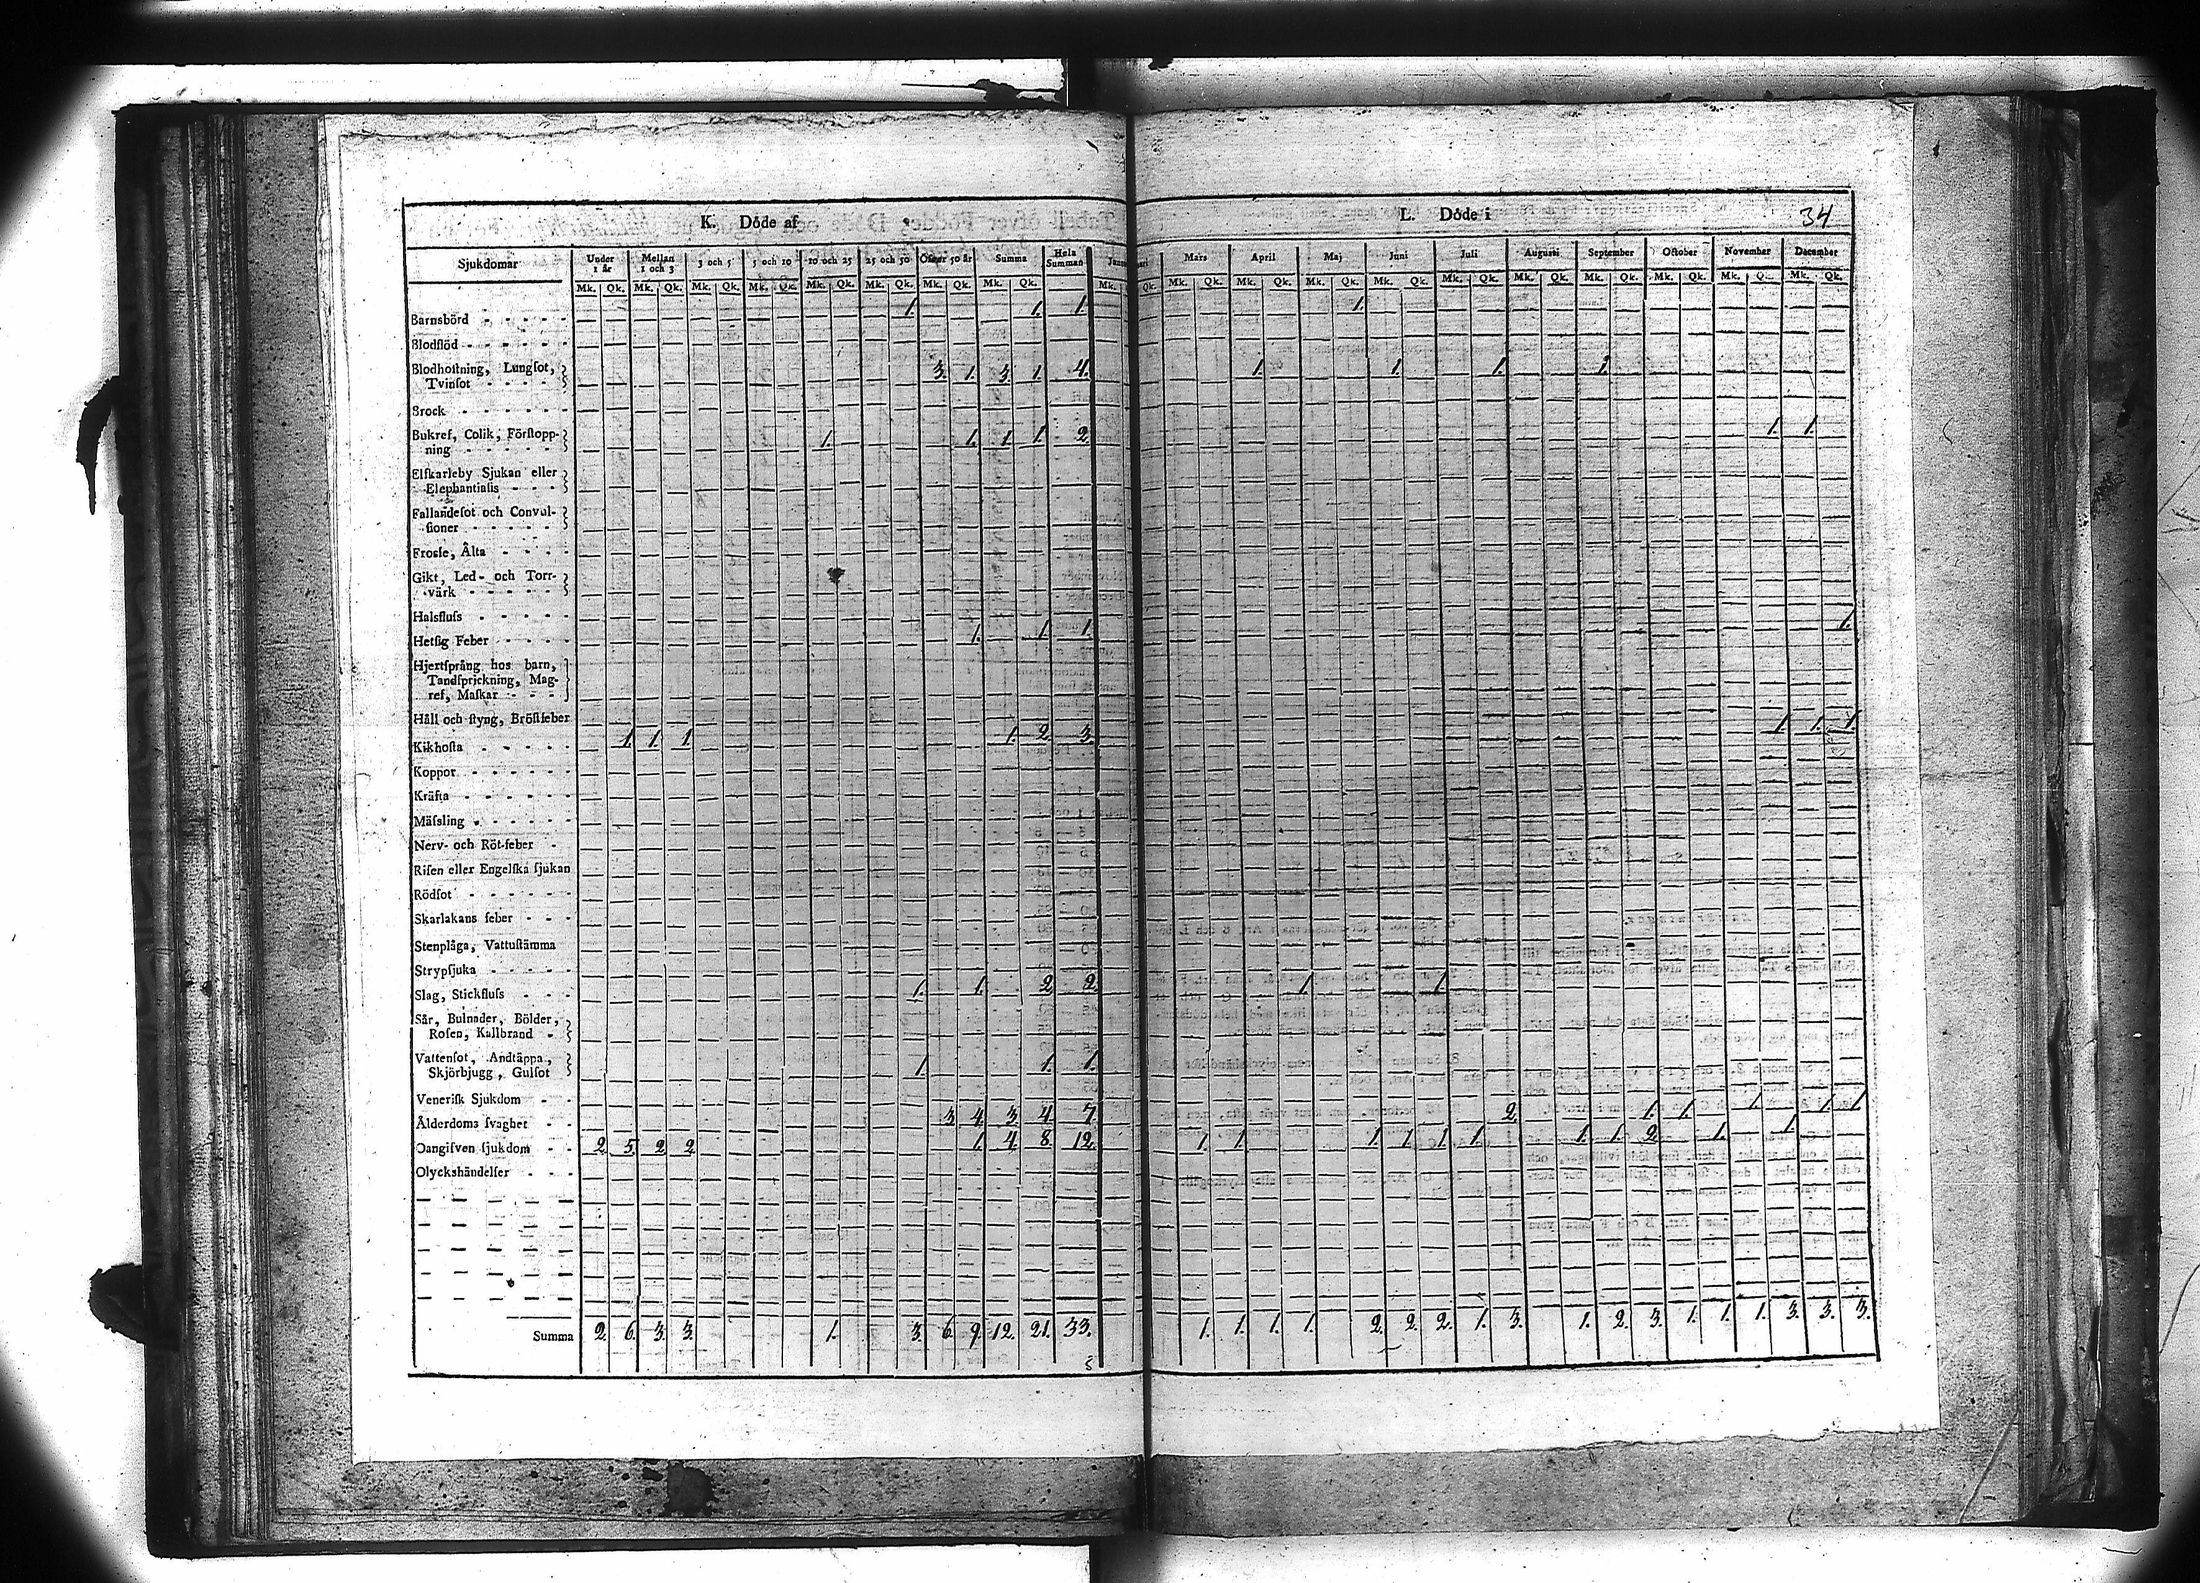 K. Döde af
L. Döde i
34
Sjukdomar
Under 1 år
Mellan 1 och 3
3 och 5
5 och 10
10 och 25
25 och 50
Öfver 50 år
Summa
Hela Summan
Mars
April
Maj
Juni
Juli
Augusti
September
October
November
December
Mk. Qk. Mk. Qk. Mk. Qk. Mk. Qk. Mk. Qk. Mk. Qk. Mk. Qk. Mk. Qk. Mk. Qk. Mk. Qk. Mk. Qk. Mk. Qk. Mk. Qk. Mk. Qk. Mk. Qk. Mk. Qk. Mk. Qk. Mk. Qk. Mk. Qk.
Barnsbörd 1. 1. 1. 1.
Blodflöd
Blodhostning, Lungsot,
Tvinsot 3. 1. 3. 1. 4. 1. 1. 1. 1.
Brock
Bukref, Colik, Förstopp-
ning 1. 1. 1. 1. 2. 1. 1.
Elfkarleby Sjukan eller
Elephantiasis
Fallandesot och Convul-
sioner
Frossa, Älta
Gikt, Led- och Torr-
värk
Halsfluss
Hetsig Feber 1. 1. 1. 1.
Hjertsprång hos barn,
Tandsprickning, Mag-
ref, Maskar
Håll och styng, Bröstfeber
Kikhosta 1. 1. 1. 1. 2. 3. 1. 1. 1.
Koppor
Kräfta
Mässling
Nerv- och Röt-feber
Risen eller Engelska sjukan
Rödsot
Skarlakans feber
Stenplåga, Vattustämma
Strypsjuka
Slag, Stickfluss 1. 1. 2. 2. 1. 1.
Sår, Bulnader, Bölder,
Rosen, Kallbrand
Vattensot, Andtäppa,
Skjörbjugg, Gulsot 1. 1. 1.
Venerisk Sjukdom
Ålderdoms svaghet 3. 4. 3. 4. 7. 2. 1. 1. 1. 1. 1.
Oangifven sjukdom 2. 5. 2. 2. 1. 4. 8. 12. 1. 1. 1. 1. 1. 1. 1. 1. 2. 1. 1.
Olyckshändelser
Summa 2. 6. 3. 3. 1. 3. 6. 9. 12. 21. 33. 1. 1. 1. 1. 2. 2. 2. 1. 3. 1. 2. 3. 1. 1. 1. 3. 3. 3.